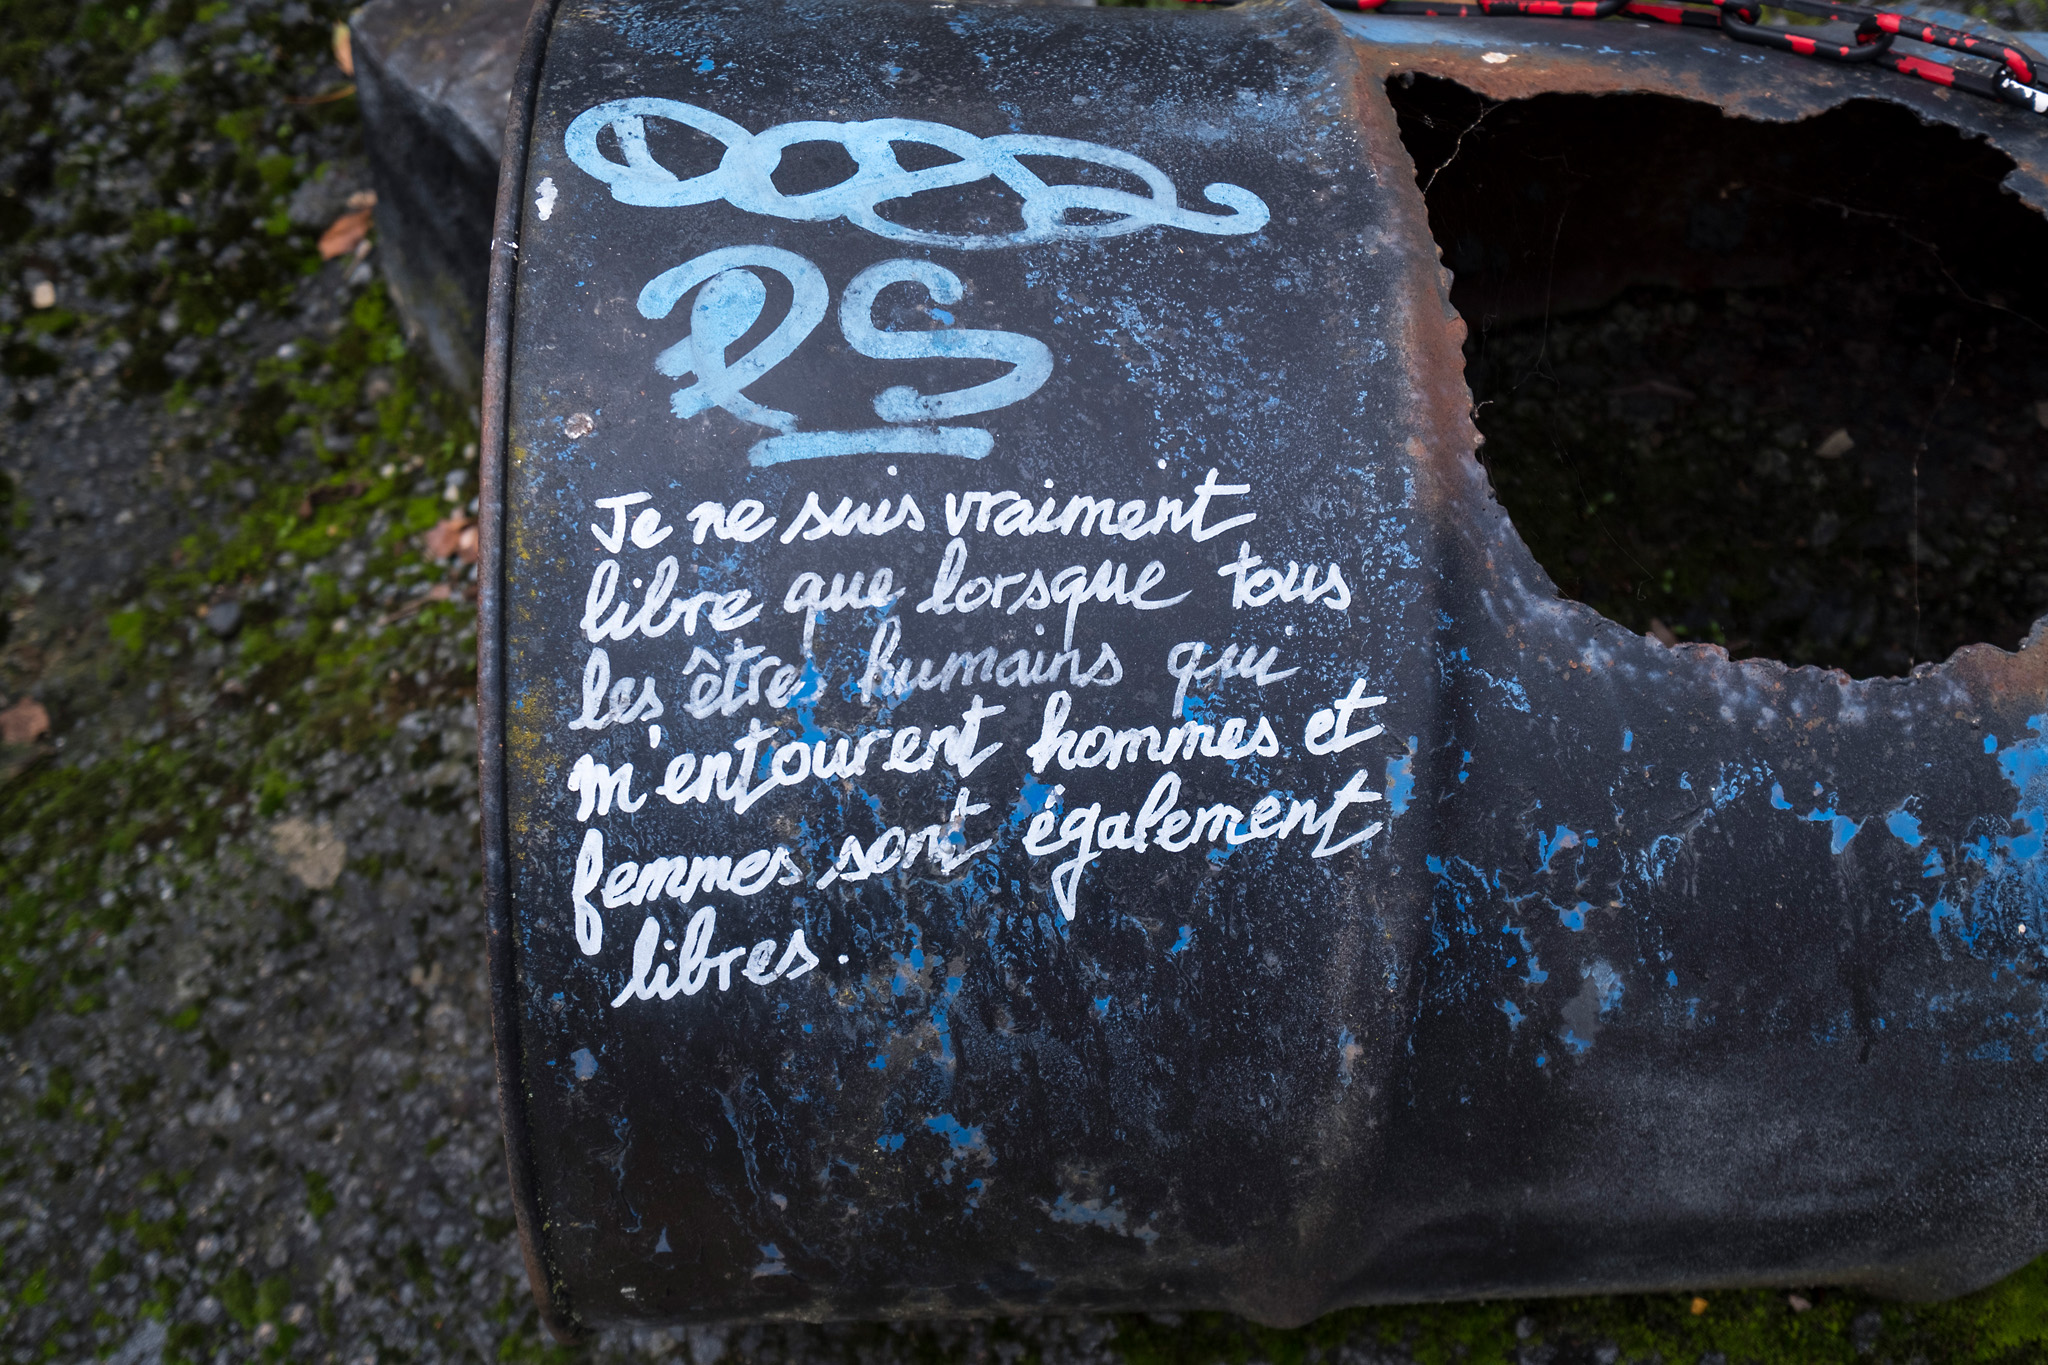 RS
Je ne suis vraiment
libre que lorsque tous
les êtres humains qui
m'entourent hommes et
femmes sont également
libres.